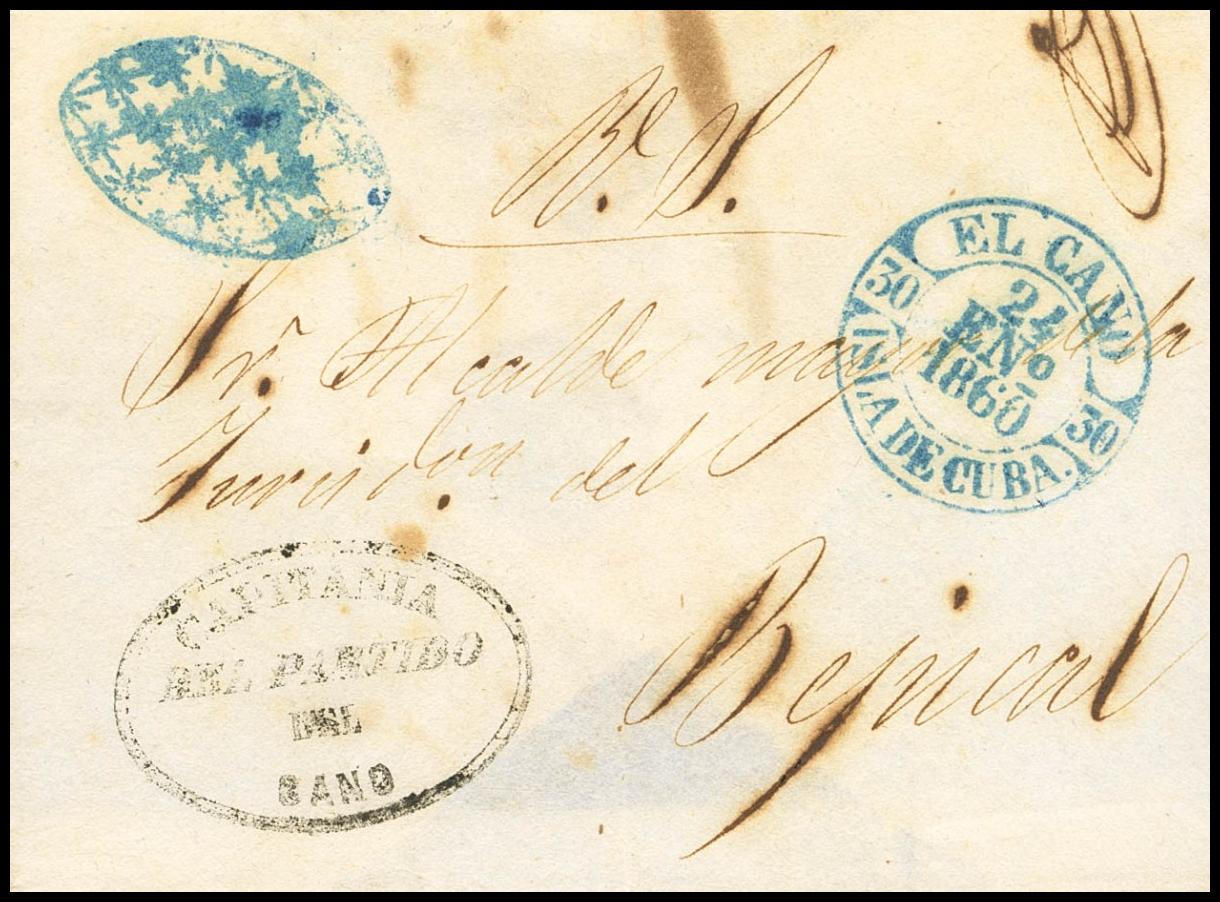 Rl. S.
EL CANO
30
24
ENº
1860
30
ISLA DE CUBA.
Sr. Alcalde mayor de la
Jurisdon. del
Bejucal
CAPITANIA
DEL PARTIDO
DEL
CANO